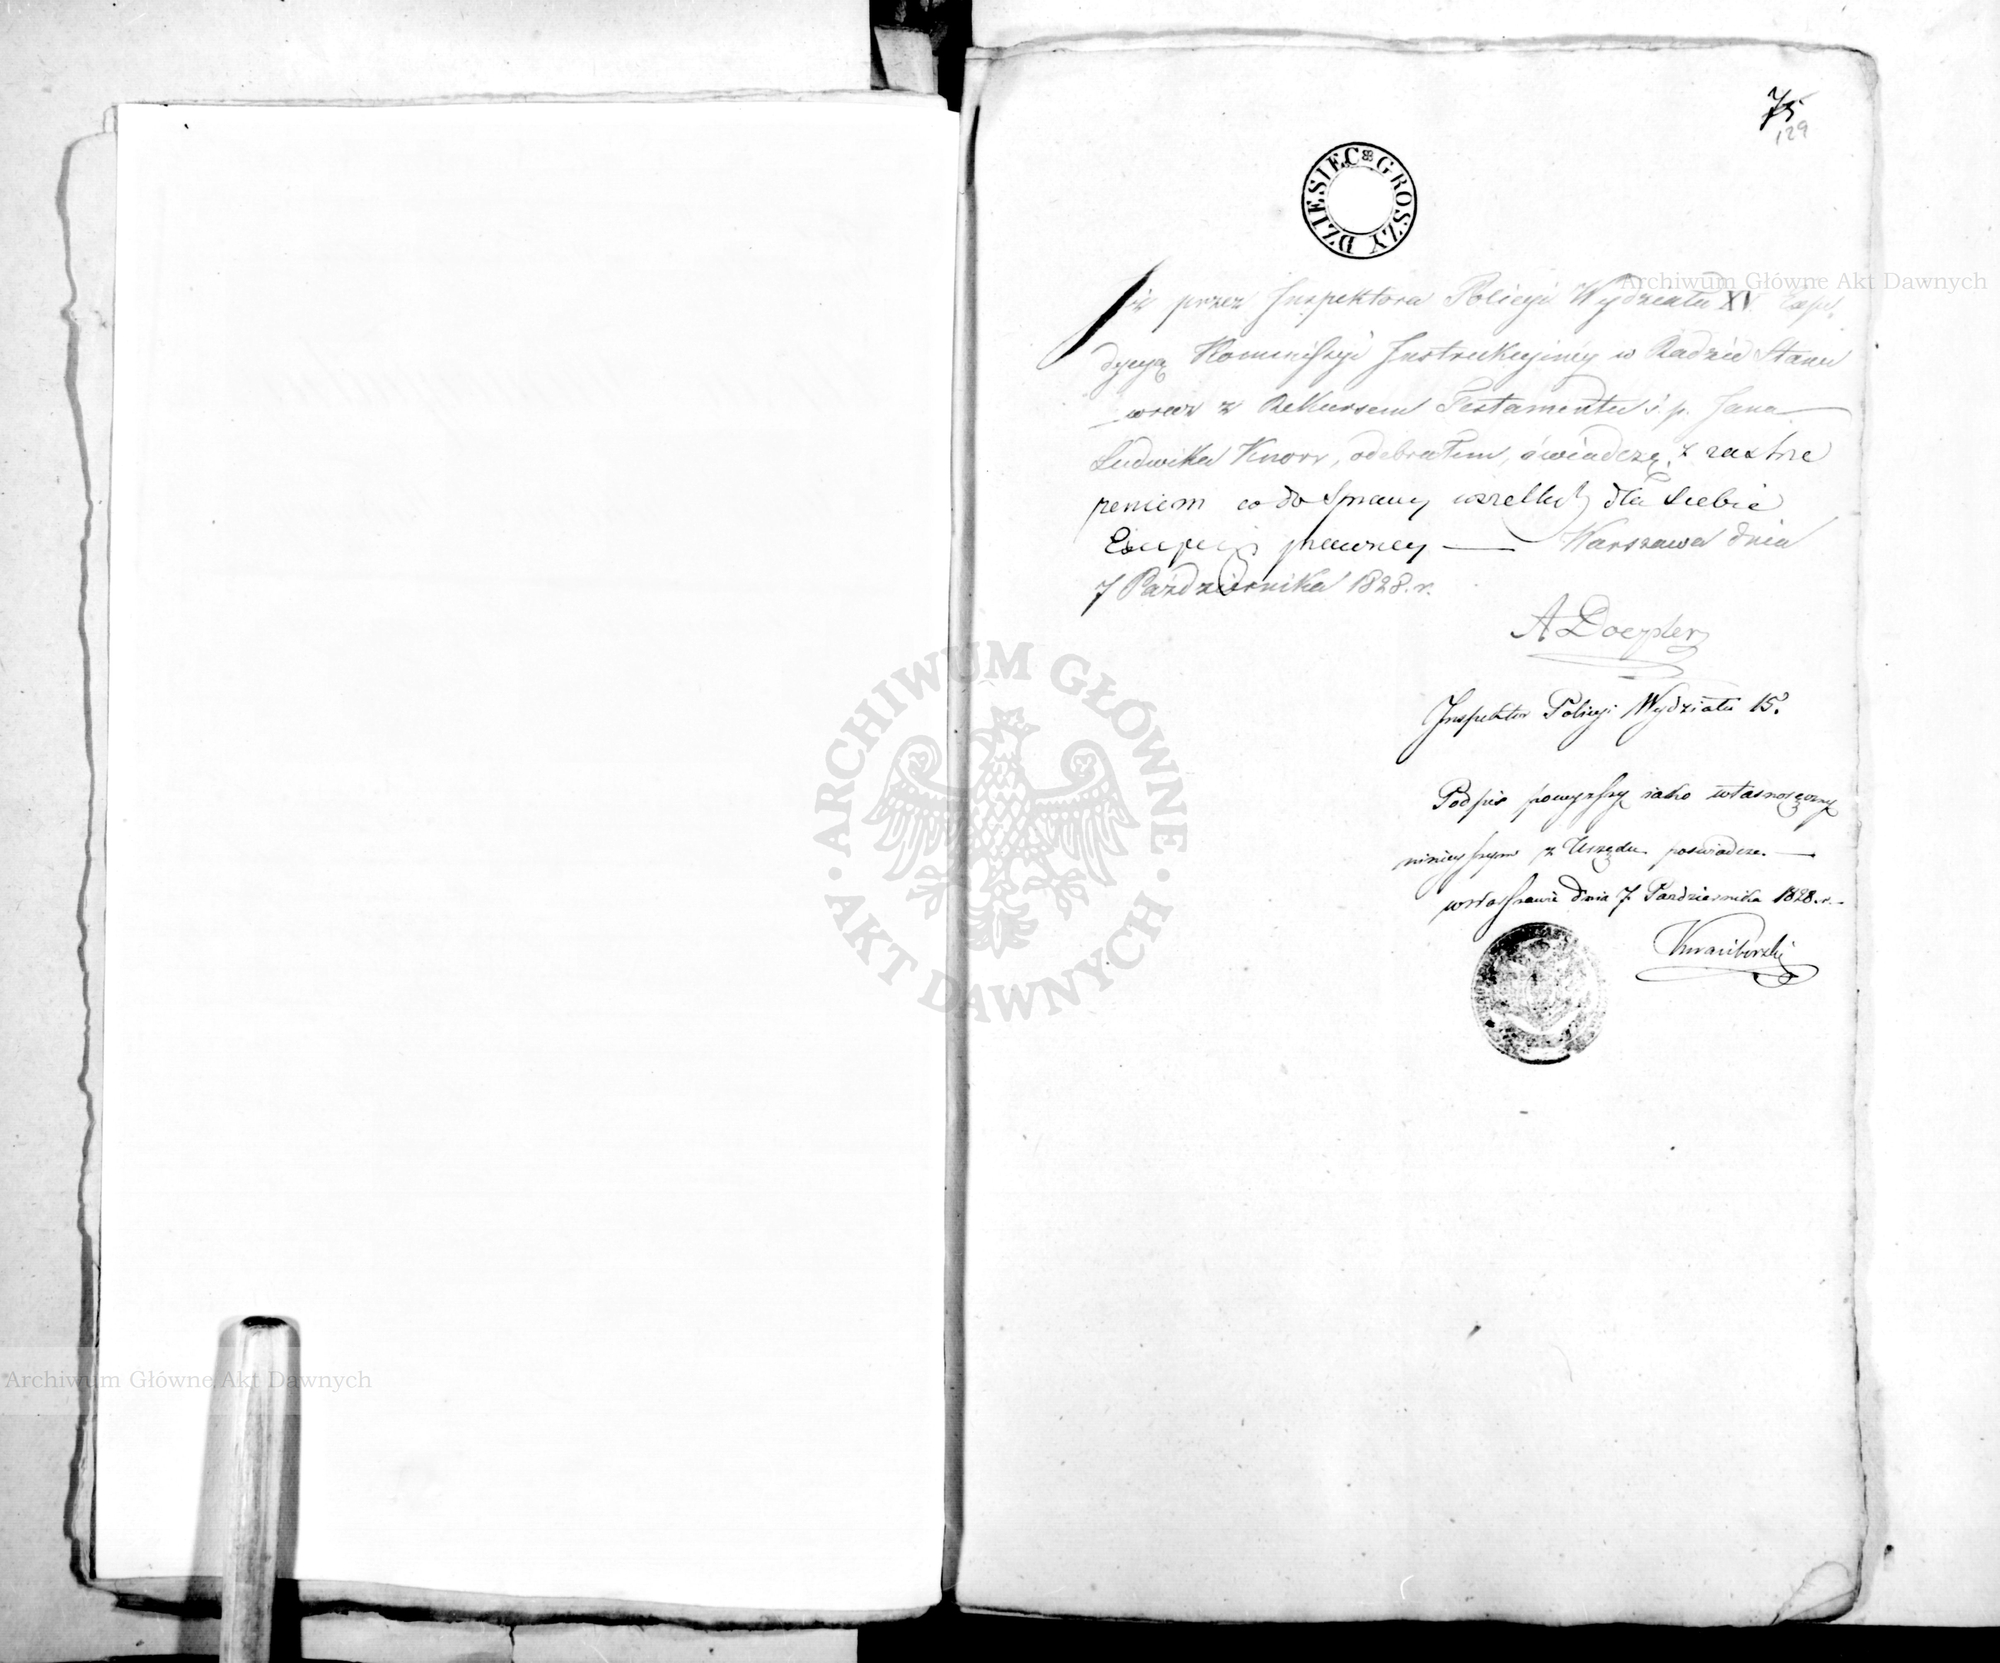 75
129
DZIESIĘC GROSZY
Archiwum Główne Akt Dawnych
Iż przez Inspektora Policyi Wydziału XV. Expe,
dycyą Kommissyi Instrukcyiney w Radzie Stanu
wraz z Rekursem Testamentu ś. p. Jana
Ludwika Knorr, odebrałem, świadczę, z zastrze
żeniem co do Sprawy wszelkiey dla Siebie
Excepcyi prawney — Warszawa dnia
7 Października 1828. r.
A Doepler
Inspektor Policyi Wydziału 15.
Podpis powyższy iako własnoręczny
ninieyszym z Urzędu poświadcza. —
w Warszawie dnia 7 Października 1828. r. —
Kwaciborski
ARCHIWUM GŁÓWNE
AKT DAWNYCH
Archiwum Główne Akt Dawnych